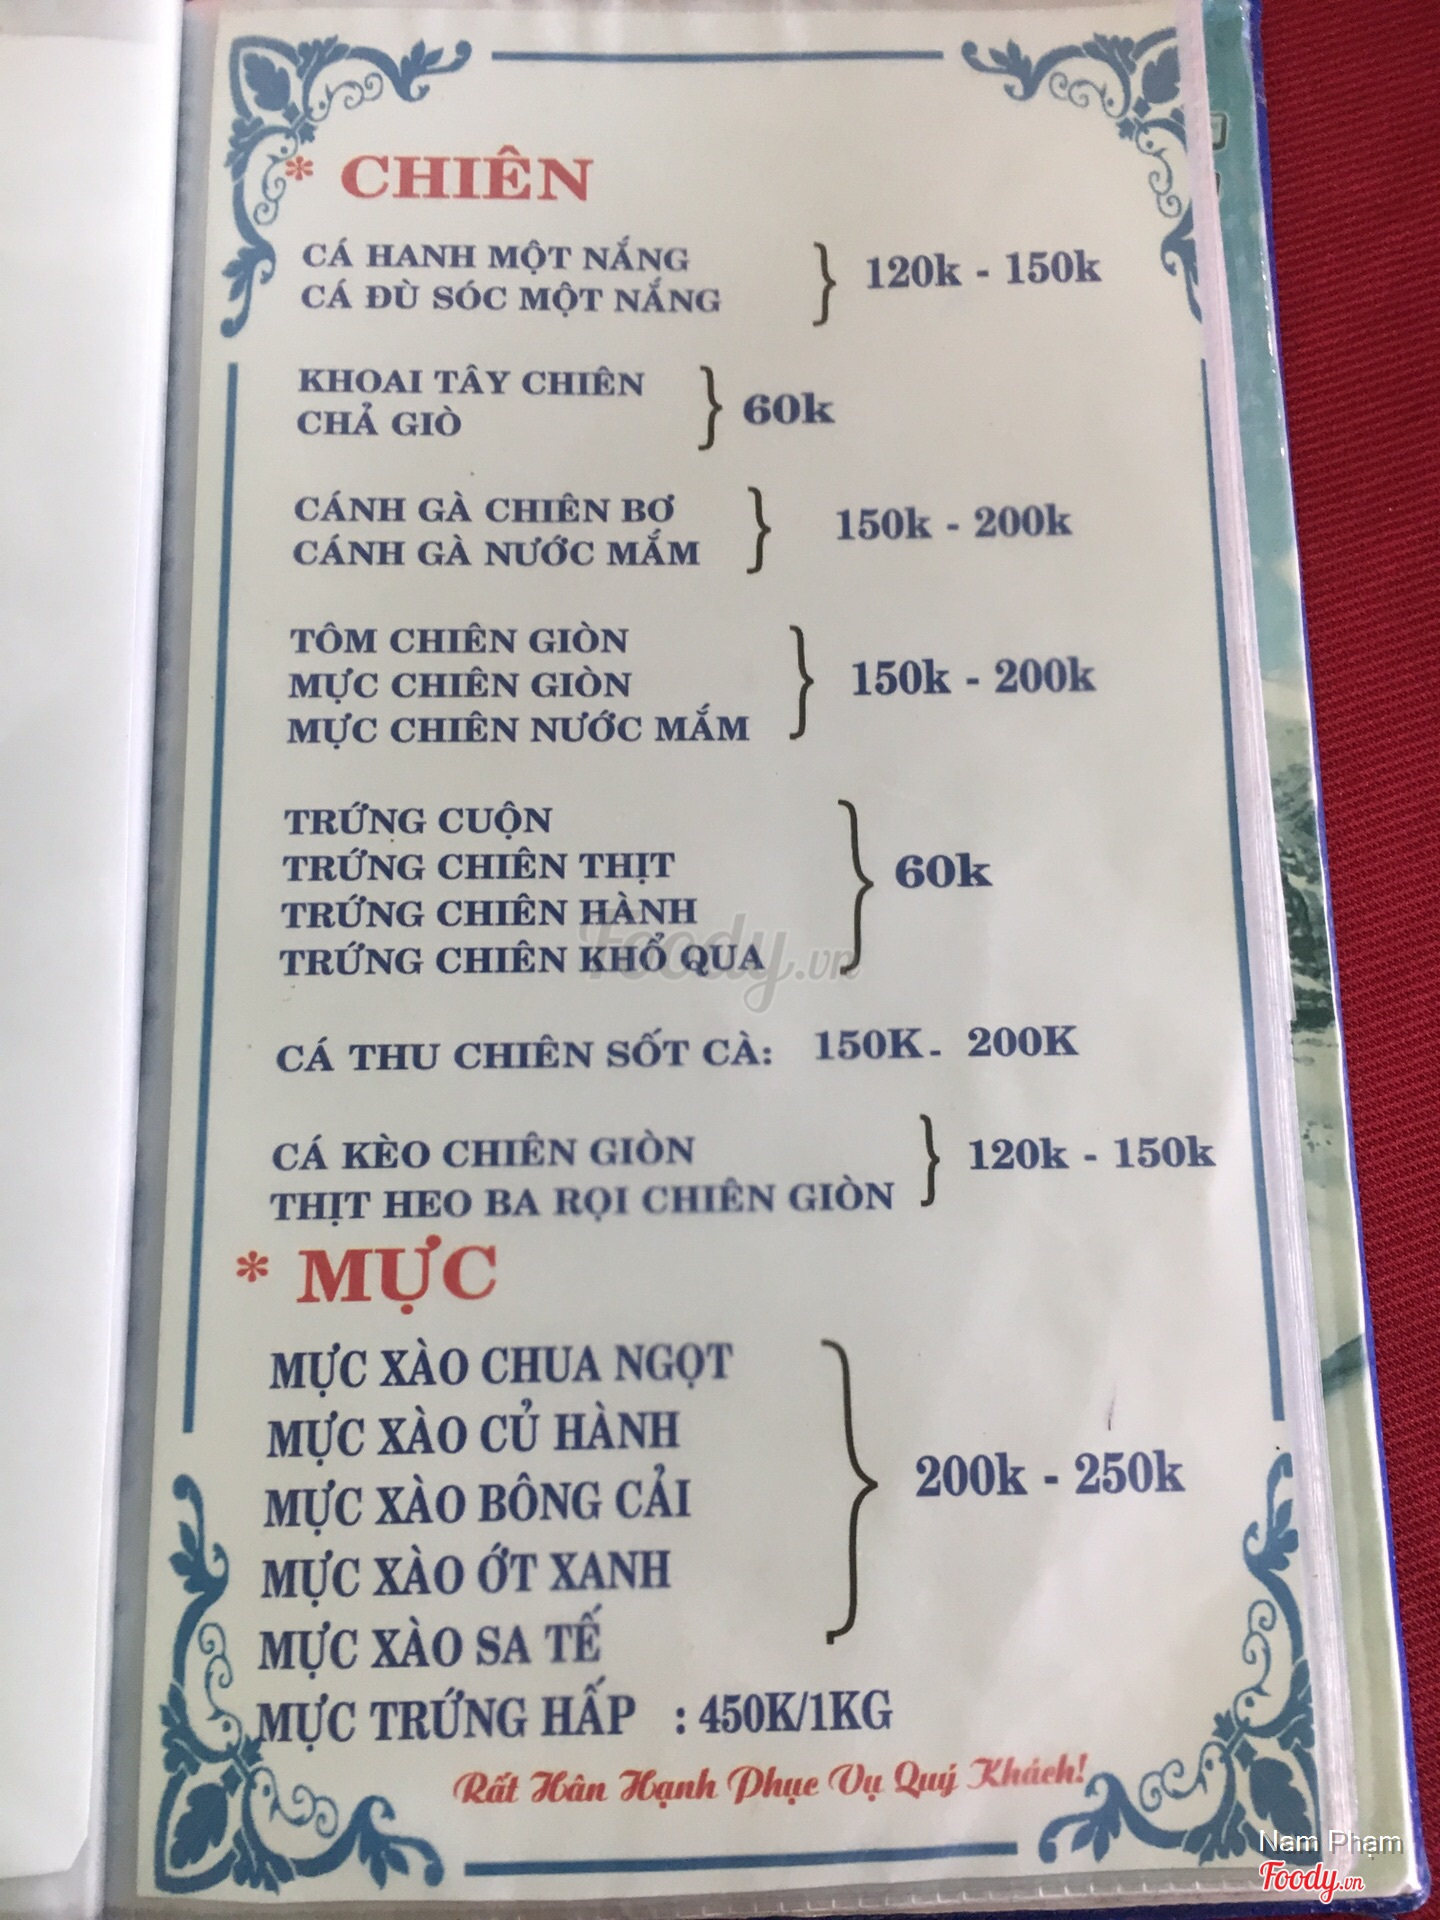 * CHIÊN
CÁ HANH MỘT NẮNG
CÁ ĐÙ SÓC MỘT NẮNG
} 120k - 150k
KHOAI TÂY CHIÊN
CHẢ GIÒ
} 60k
CÁNH GÀ CHIÊN BƠ
CÁNH GÀ NƯỚC MẮM
} 150k - 200k
TÔM CHIÊN GIÒN
MỰC CHIÊN GIÒN
MỰC CHIÊN NƯỚC MẮM
} 150k - 200k
TRỨNG CUỘN
TRỨNG CHIÊN THỊT
TRỨNG CHIÊN HÀNH
TRỨNG CHIÊN KHỔ QUA
} 60k
Foody.vn
CÁ THU CHIÊN SỐT CÀ: 150K - 200K
CÁ KÈO CHIÊN GIÒN
THỊT HEO BA RỌI CHIÊN GIÒN
} 120k - 150k
* MỰC
MỰC XÀO CHUA NGỌT
MỰC XÀO CỦ HÀNH
MỰC XÀO BÔNG CẢI
MỰC XÀO ỚT XANH
MỰC XÀO SA TẾ
} 200k - 250k
MỰC TRỨNG HẤP : 450K/1KG
Rất Hân Hạnh Phục Vụ Quý Khách!
Nam Phạm
Foody.vn